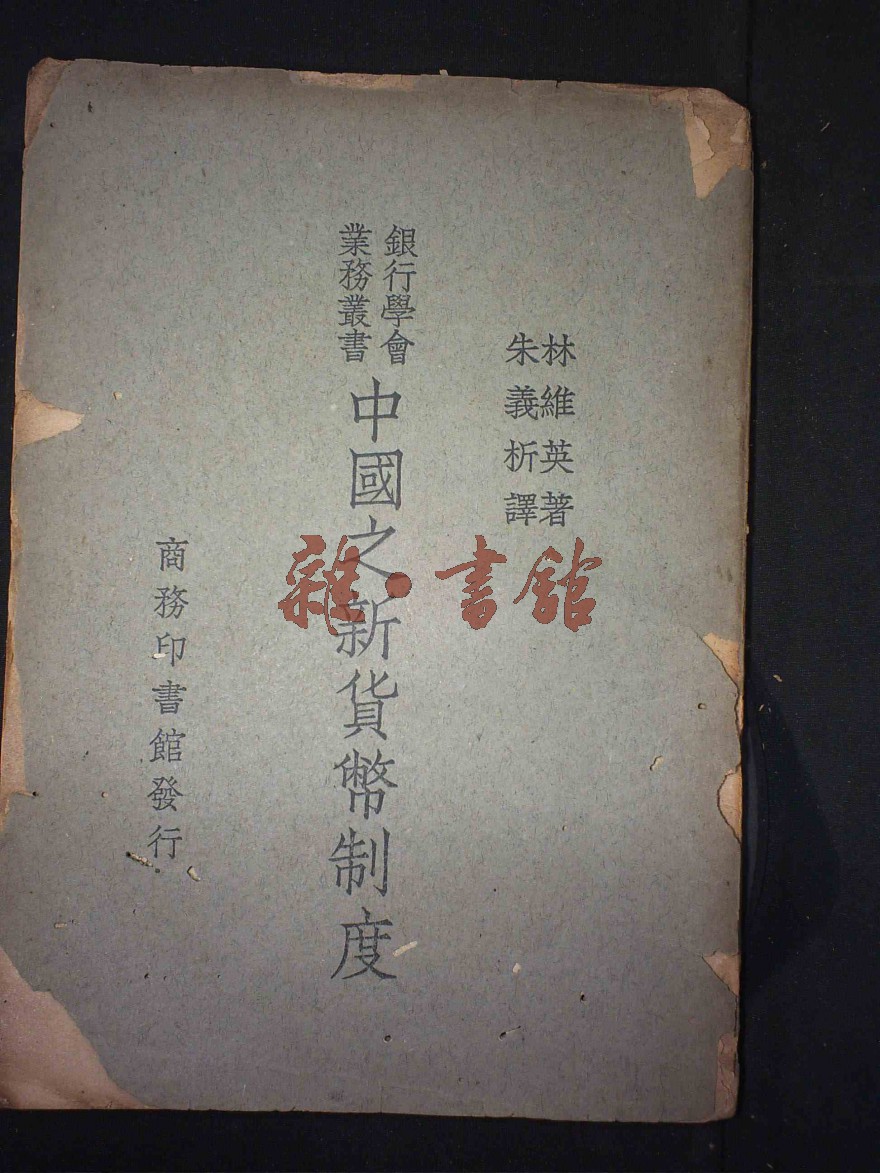 林維英著
朱義析譯
銀行學會
業務叢書
中國之新貨幣制度
商務印書館發行
雜·書館